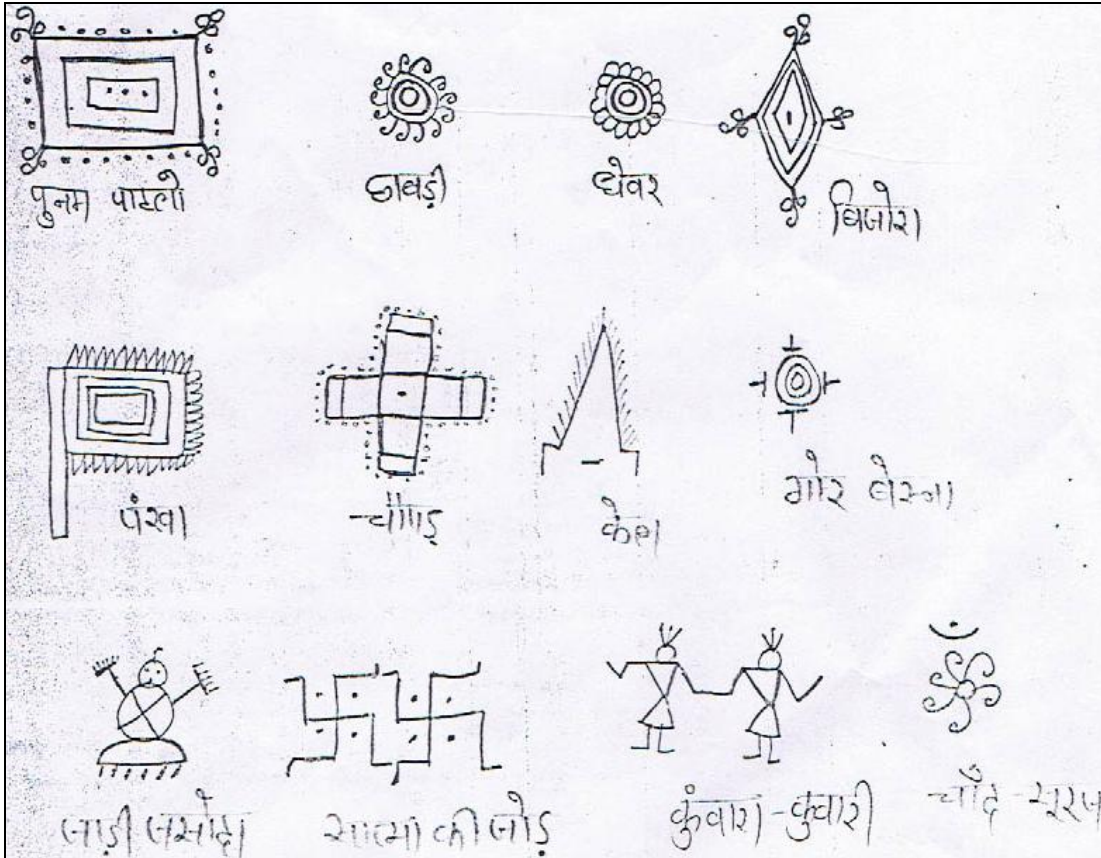 पुनम पाटलो
छाबड़ी
घेवर
बिजोरा
पंखा
चौपड़
केल
गोर बेसना
जाड़ी जसोदा
सात्या की जोड़
कुंवारा - कुंवारी
चाँद - सूरज